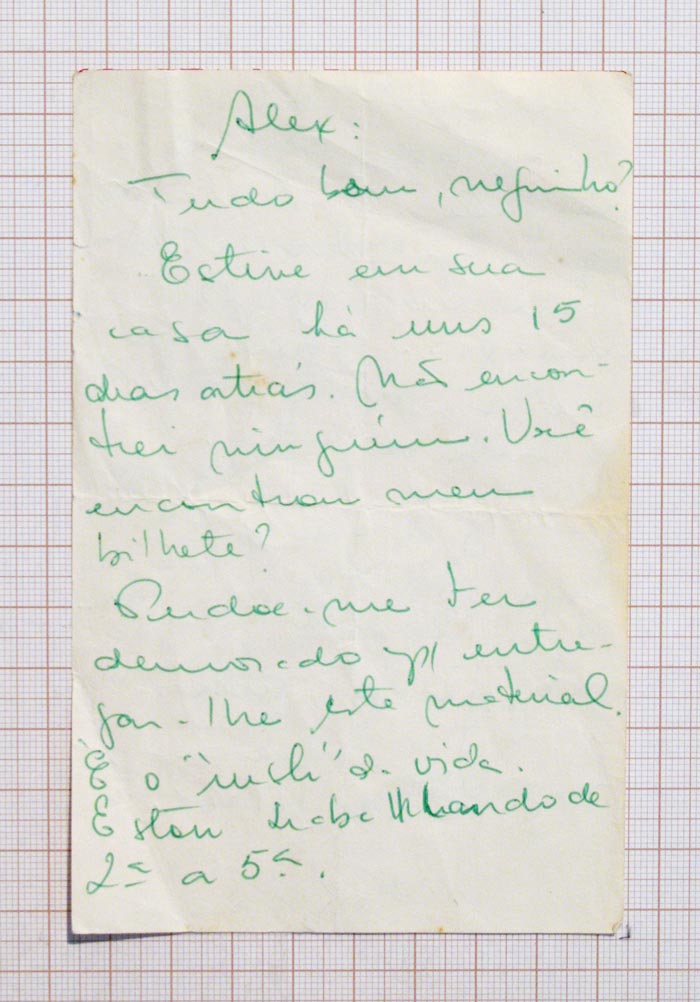 Alex:
Tudo bem, neguinho?
Estive em sua
casa há uns 15
dias atrás. Não encon-
trei ninguém. Você
encontrou meu
bilhete?
Perdoe-me ter
demorado p/ entre-
gar-lhe este material.
É o "rush" da vida.
Estou trabalhando de
2ª a 5ª.